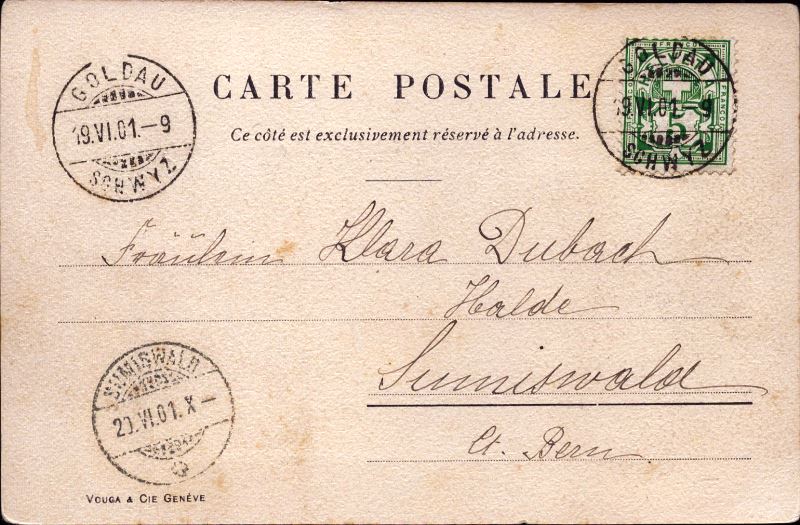 GOLDAU
19.VI.01.–9
SCHWYZ
CARTE POSTALE
Ce côté est exclusivement réservé à l'adresse.
FRANCO
5
GOLDAU
19.VI.01.–9
SCHWYZ
Fräulein Klara Dubach
Halde
Sumiswald
Ct. Bern
SUMISWALD
20.VI.01.X–
VOUGA & CIE GENÈVE